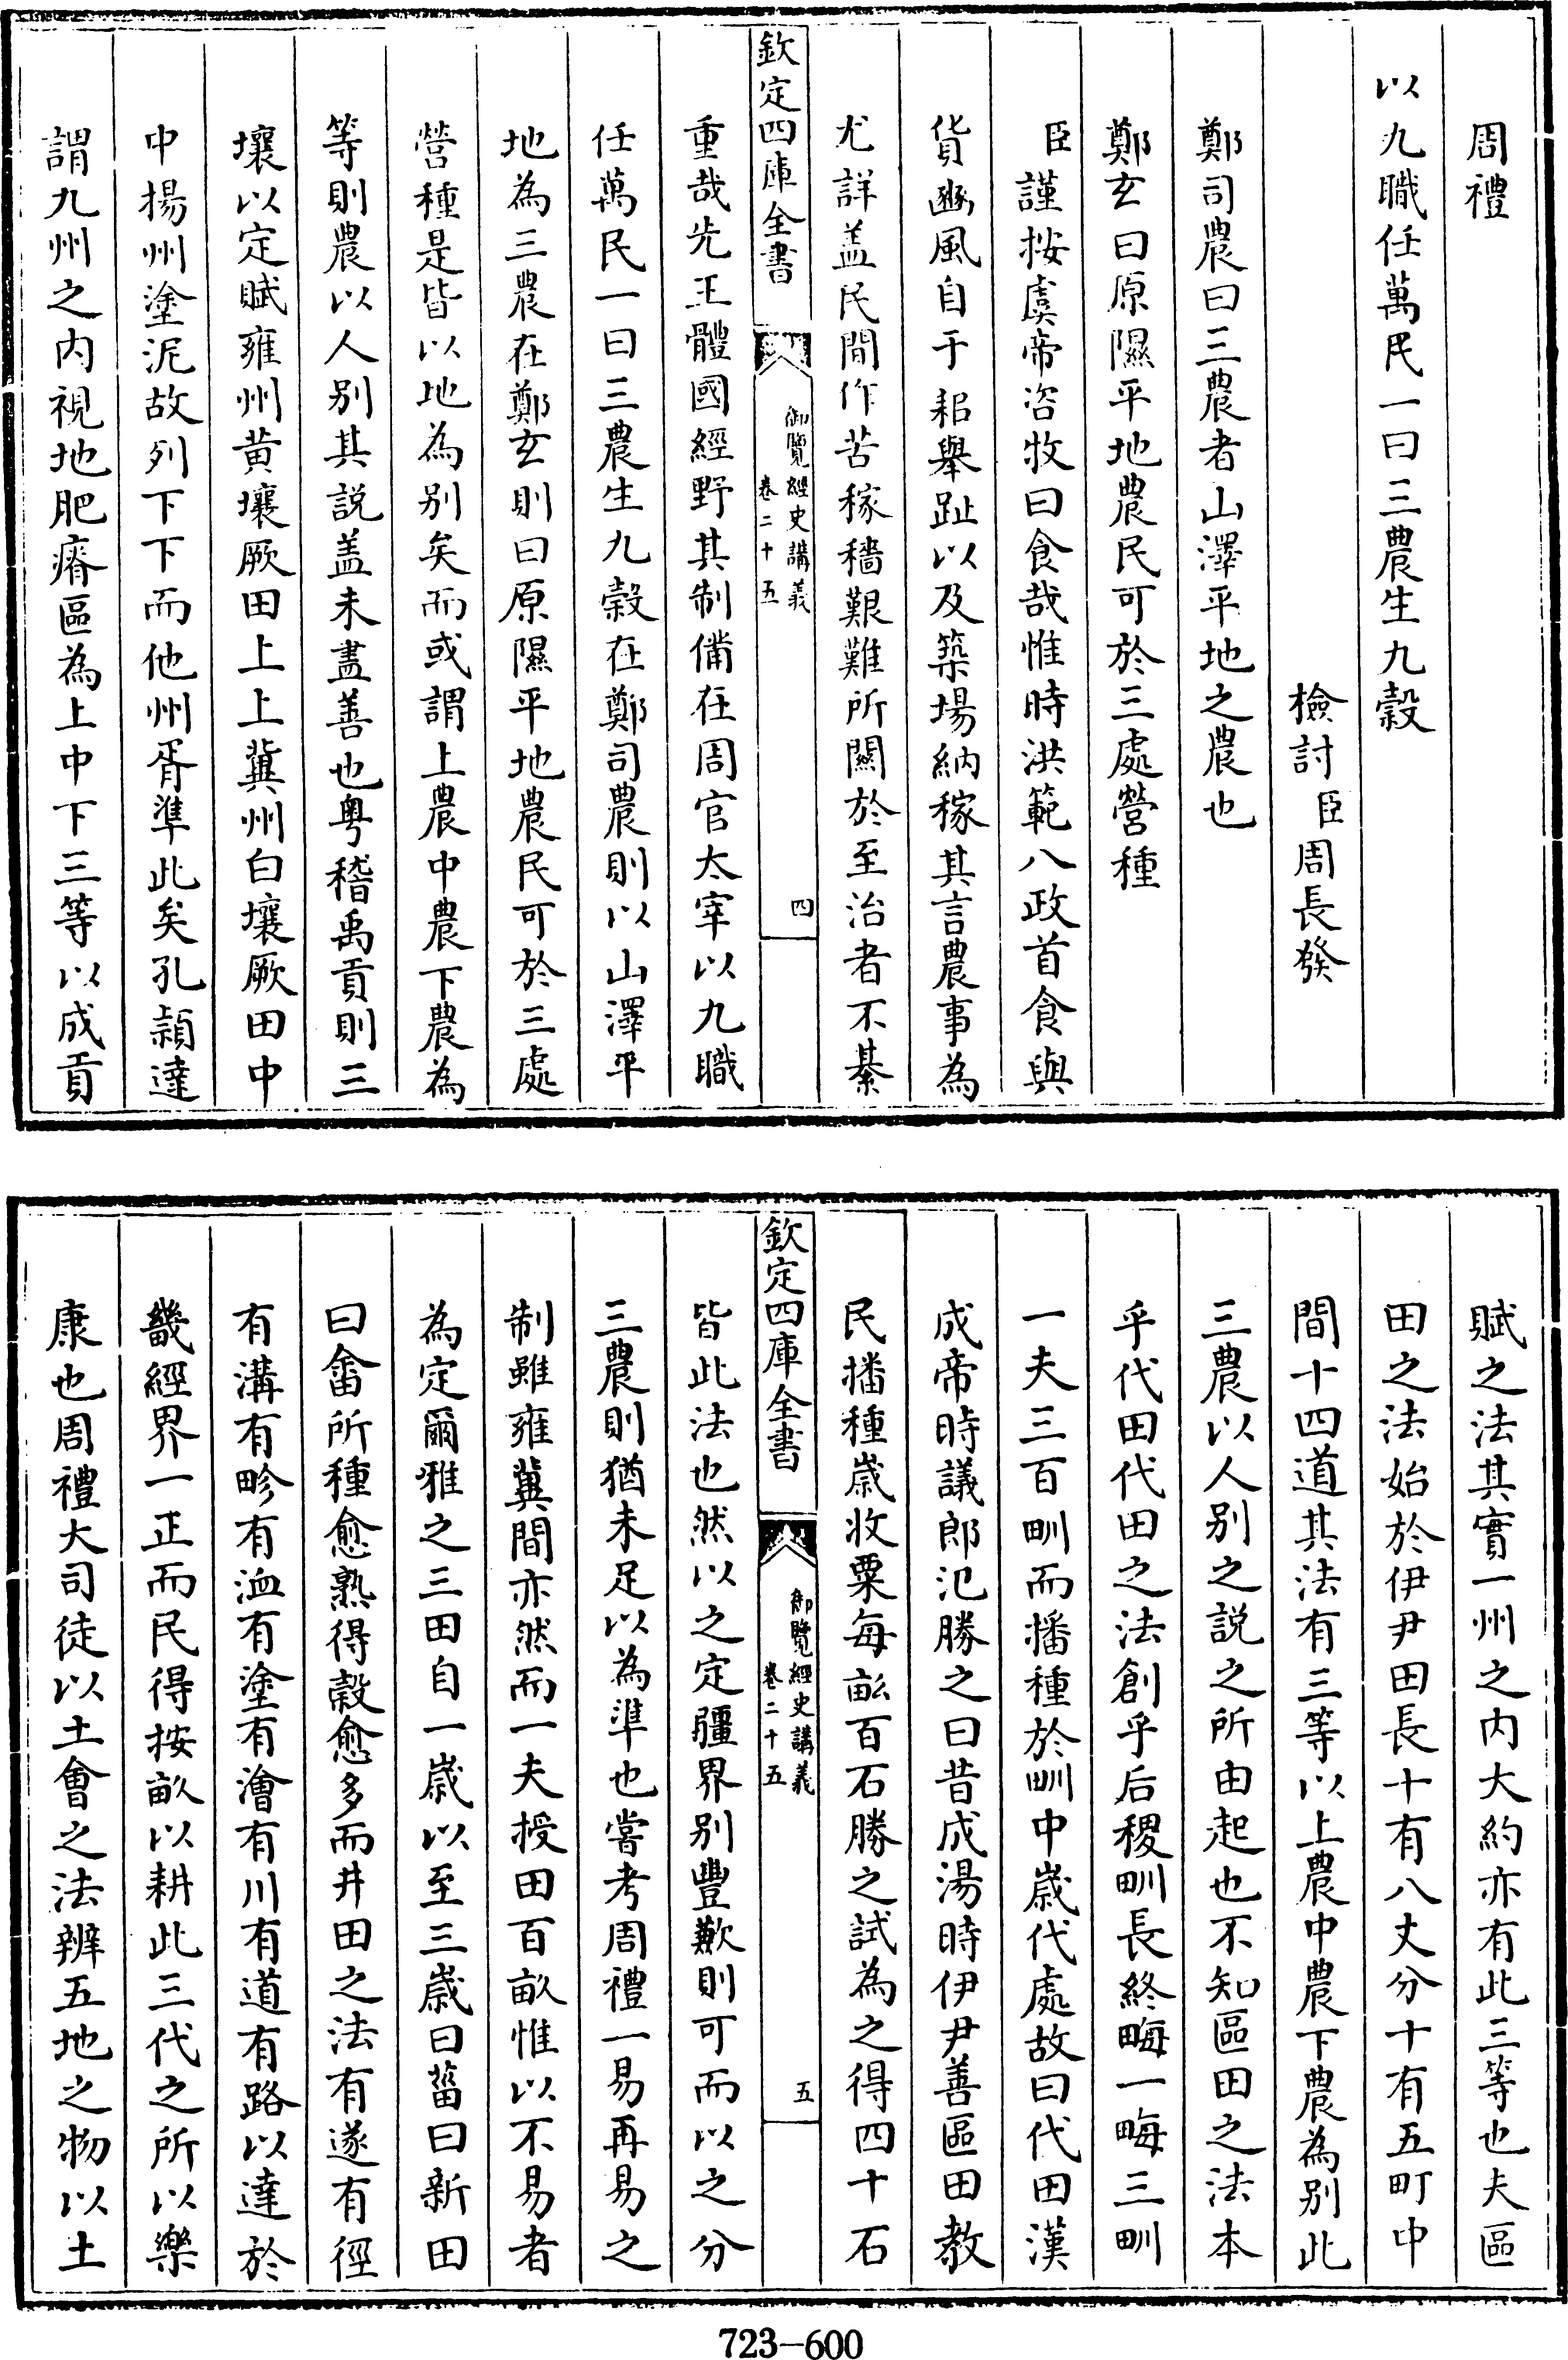 周禮
以九職任萬民一曰三農生九穀
檢討臣周長發
鄭司農曰三農者山澤平地之農也
鄭玄曰原隰平地農民可於三處營種
臣謹按虞帝咨牧曰食哉惟時洪範八政首食與
貨豳風自于耜舉趾以及築場納稼其言農事為
尤詳盖民間作苦稼穡艱難所關於至治者不綦
欽定四庫全書
御覽經史講義
卷二十五
四
重哉先王體國經野其制備在周官太宰以九職
任萬民一曰三農生九穀在鄭司農則以山澤平
地為三農在鄭玄則曰原隰平地農民可於三處
營種是皆以地為别矣而或謂上農中農下農為
等則農以人别其説盖未盡善也粤稽禹貢則三
壤以定賦雍州黄壤厥田上上冀州白壤厥田中
中揚州塗泥故列下下而他州胥準此矣孔頴達
謂九州之内視地肥瘠區為上中下三等以成貢
賦之法其實一州之内大約亦有此三等也夫區
田之法始於伊尹田長十有八丈分十有五町中
間十四道其法有三等以上農中農下農為别此
三農以人别之説之所由起也不知區田之法本
乎代田代田之法創乎后稷甽長終畮一畮三甽
一夫三百甽而播種於甽中歲代處故曰代田漢
成帝時議郎氾勝之曰昔成湯時伊尹善區田教
民播種歲收粟每畝百石勝之試為之得四十石
欽定四庫全書
御覽經史講義
卷二十五
五
皆此法也然以之定疆界别豐歉則可而以之分
三農則猶未足以為準也嘗考周禮一易再易之
制雖雍冀間亦然而一夫授田百畝惟以不易者
為定爾雅之三田自一歲以至三歲曰菑曰新田
曰畬所種愈熟得穀愈多而井田之法有遂有徑
有溝有畛有洫有塗有澮有川有道有路以達於
畿經界一正而民得按畝以耕此三代之所以樂
康也周禮大司徒以土會之法辨五地之物以土
723-600